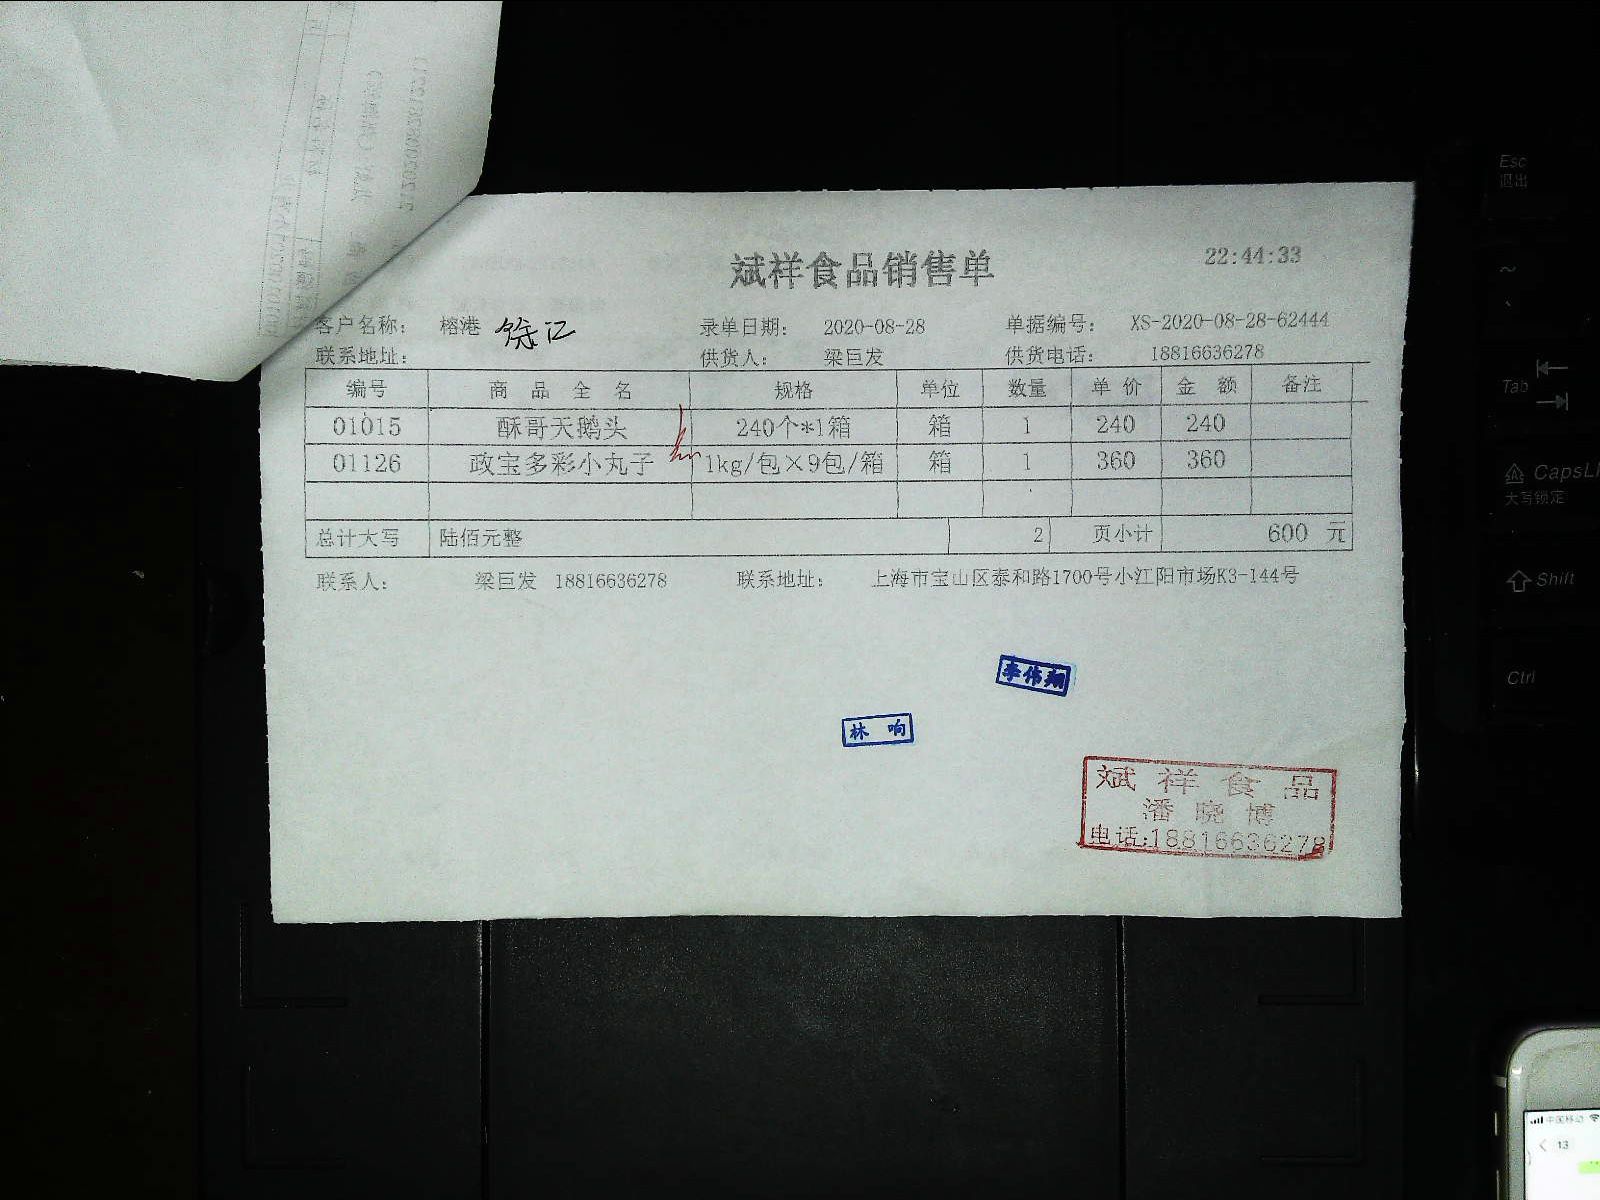 斌祥食品销售单
22:44:33
客户名称： 榕港 录单日期： 2020-08-28 单据编号： XS-2020-08-28-62444
联系地址： 供货人： 梁巨发 供货电话： 18816636278
编号 商 品 全 名 规格 单位 数量 单 价 金 额 备注
01015 酥哥天鹅头 240个*1箱 箱 1 240 240
01126 政宝多彩小丸子 1kg/包×9包/箱 箱 1 360 360
总计大写 陆佰元整 2 页小计 600 元
联系人： 梁巨发 18816636278 联系地址： 上海市宝山区泰和路1700号小江阳市场K3-144号
李伟翔
林 响
斌 祥 食 品
潘 晓 博
电话:18816636278
Esc
退出
~
Tab
CapsL
大写锁定
Shift
Ctrl
中国移动
13